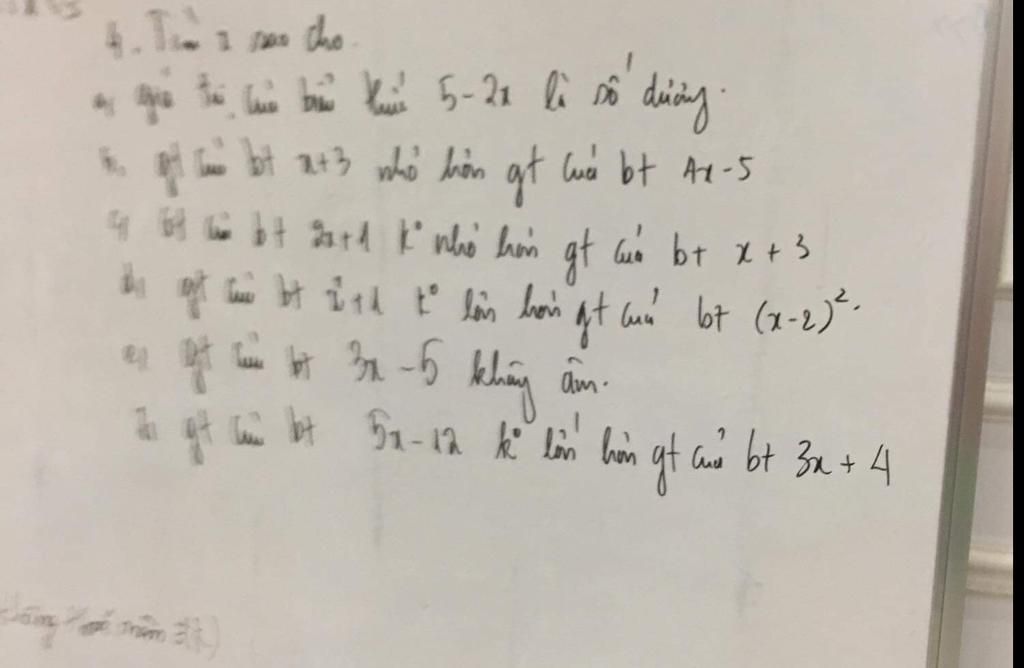 4. Tìm x sao cho.
a, giá trị của biểu thức 5-2x là số dương.
b, gt của bt x+3 nhỏ hơn gt của bt 4x-5
c, gt của bt 2x+1 k° nhỏ hơn gt của bt x+3
d, gt của bt x²+1 k° lớn hơn gt của bt (x-2)².
e, gt của bt 3x-5 không âm.
gt của bt 5x-12 k° lớn hơn gt của bt 3x+4